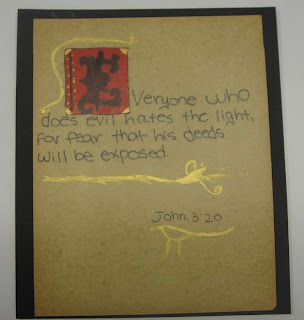 Everyone who
does evil hates the light,
for fear that his deeds
will be exposed.
John. 3:20